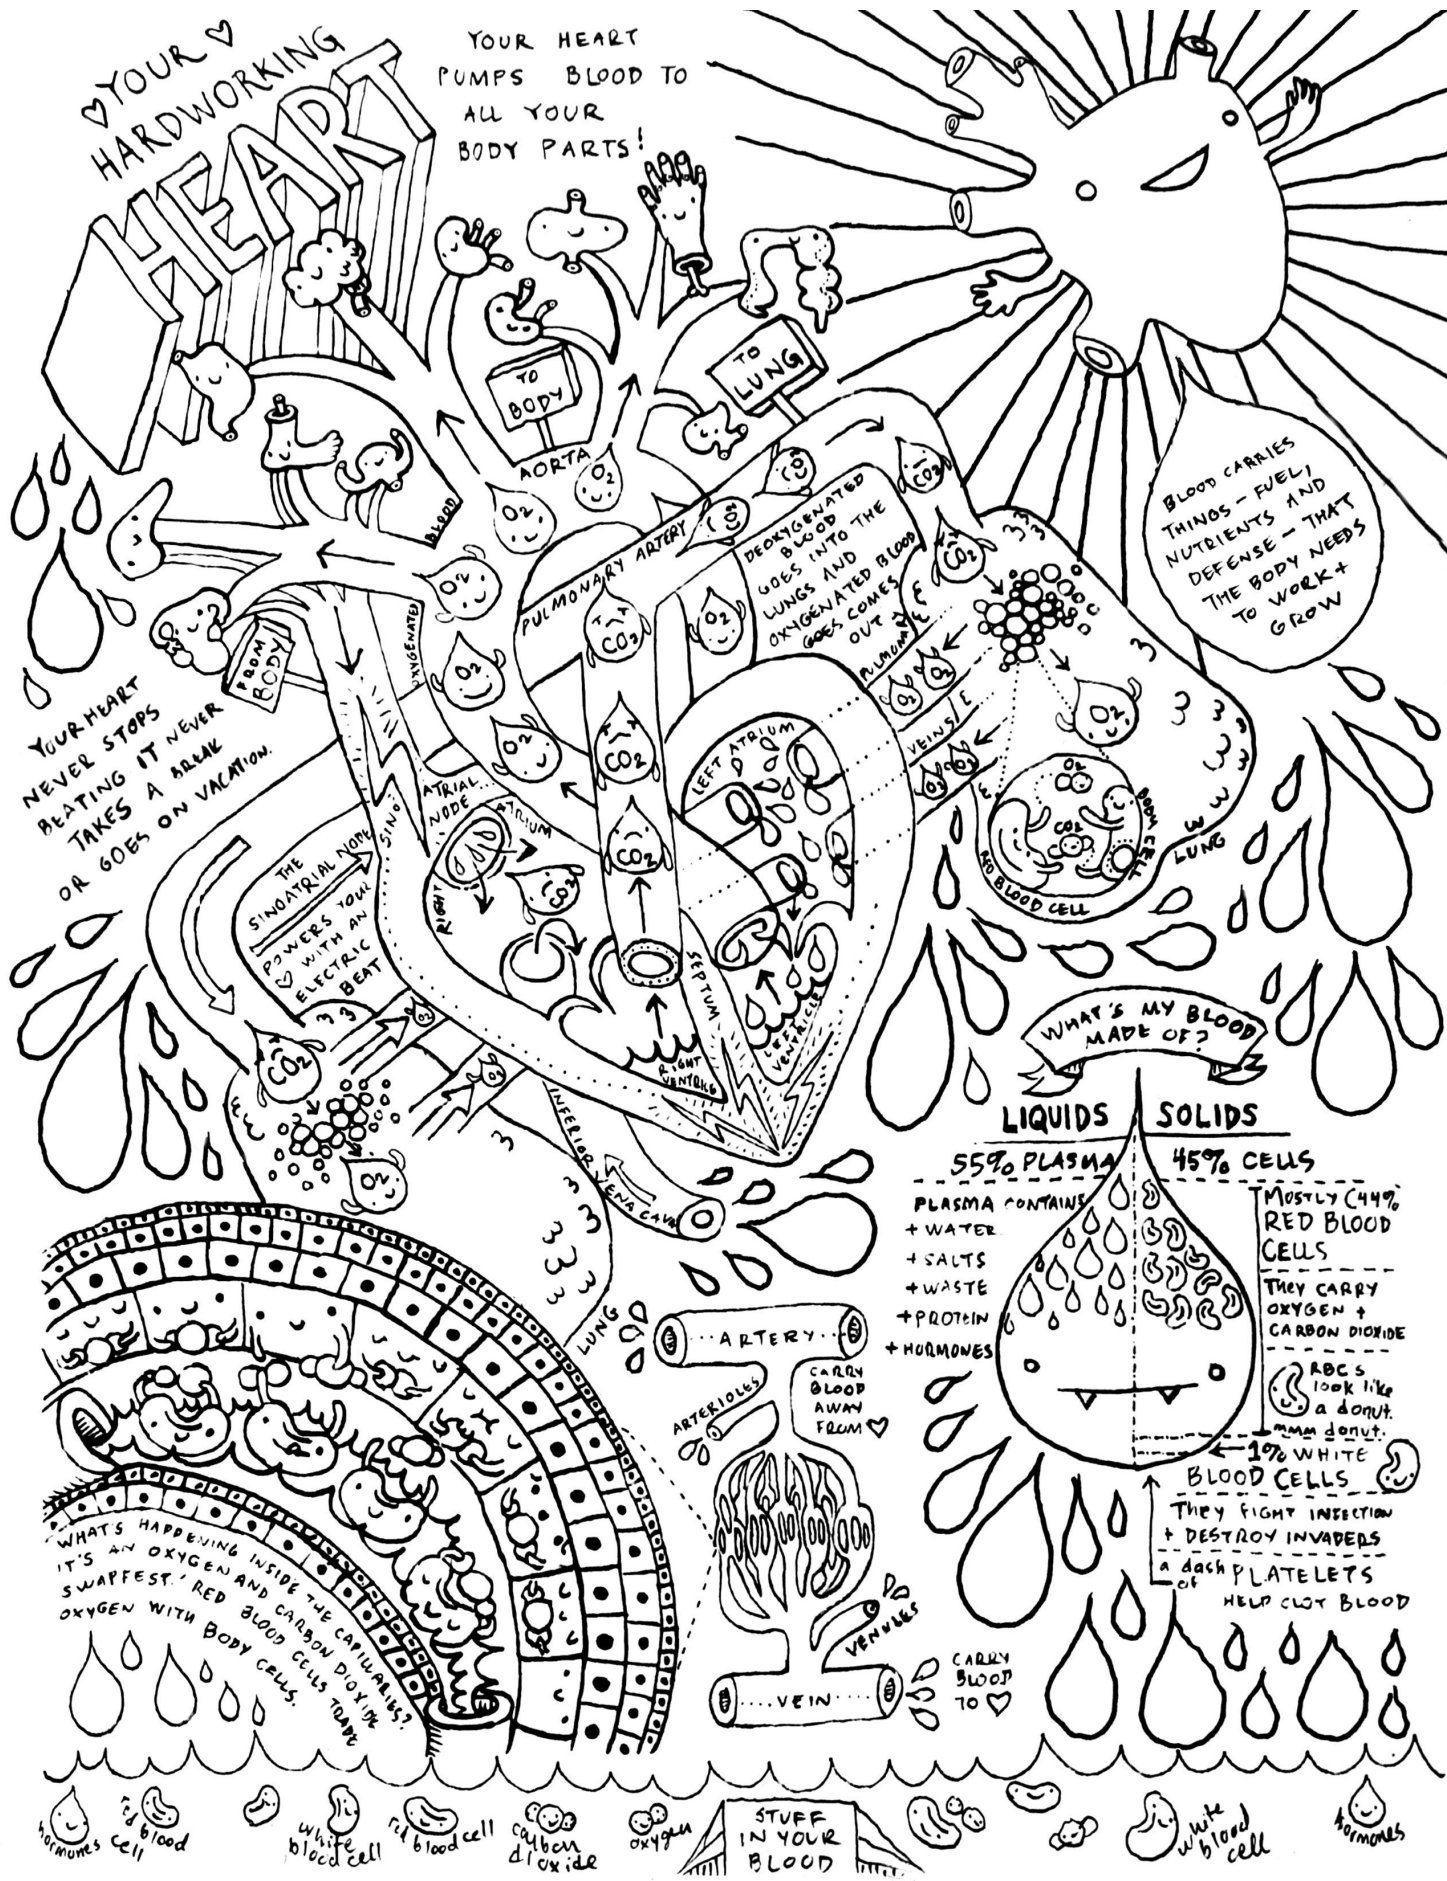 YOUR
HARDWORKING
HEART
YOUR HEART
PUMPS BLOOD TO
ALL YOUR
BODY PARTS!
TO
BODY
TO
LUNG
AORTA
O2
O2
CO2
CO2
CO2
CO2
BLOOD CARRIES
THINGS - FUEL,
NUTRIENTS AND
DEFENSE - THAT
THE BODY NEEDS
TO WORK +
GROW
OXYGENATED
BLOOD
O2
O2
O2
PULMONARY ARTERY
CO2
CO2
CO2
O2
DEOXYGENATED
BLOOD
GOES INTO THE
LUNGS AND
OXYGENATED BLOOD
GOES COMES
OUT
PULMONARY
VEINS
O2
O2
O2
O2
O2
O2
CO2
RED BLOOD CELL
BODY CELL
LUNG
FROM
BODY
YOUR HEART
NEVER STOPS
BEATING IT NEVER
TAKES A BREAK
OR GOES ON VACATION.
SINO
ATRIAL
NODE
THE
SINOATRIAL NODE
POWERS YOUR
♡ WITH AN
ELECTRIC
BEAT
RIGHT
ATRIUM
CO2
LEFT ATRIUM
SEPTUM
RIGHT
VENTRICLE
LEFT
VENTRICLE
O2
O2
CO2
O2
INFERIOR VENA CAVA
LUNG
WHAT'S MY BLOOD
MADE OF?
LIQUIDS
SOLIDS
55% PLASMA
45% CELLS
PLASMA CONTAINS
+ WATER
+ SALTS
+ WASTE
+ PROTEIN
+ HORMONES
MOSTLY (44%
RED BLOOD
CELLS
THEY CARRY
OXYGEN +
CARBON DIOXIDE
RBC'S
look like
a donut.
mmm donut.
1% WHITE
BLOOD CELLS
THEY FIGHT INFECTION
+ DESTROY INVADERS
a dash
of
PLATELETS
HELP CLOT BLOOD
ARTERY
CARRY
BLOOD
AWAY
FROM ♡
ARTERIOLES
VENULES
VEIN
CARRY
BLOOD
TO ♡
WHAT'S HAPPENING INSIDE THE CAPILLARIES?
IT'S AN OXYGEN AND CARBON DIOXIDE
SWAPFEST! RED BLOOD CELLS TRADE
OXYGEN WITH BODY CELLS.
hormones
red blood
cell
white
blood cell
red blood cell
carbon
dioxide
oxygen
STUFF
IN YOUR
BLOOD
white
blood
cell
hormones